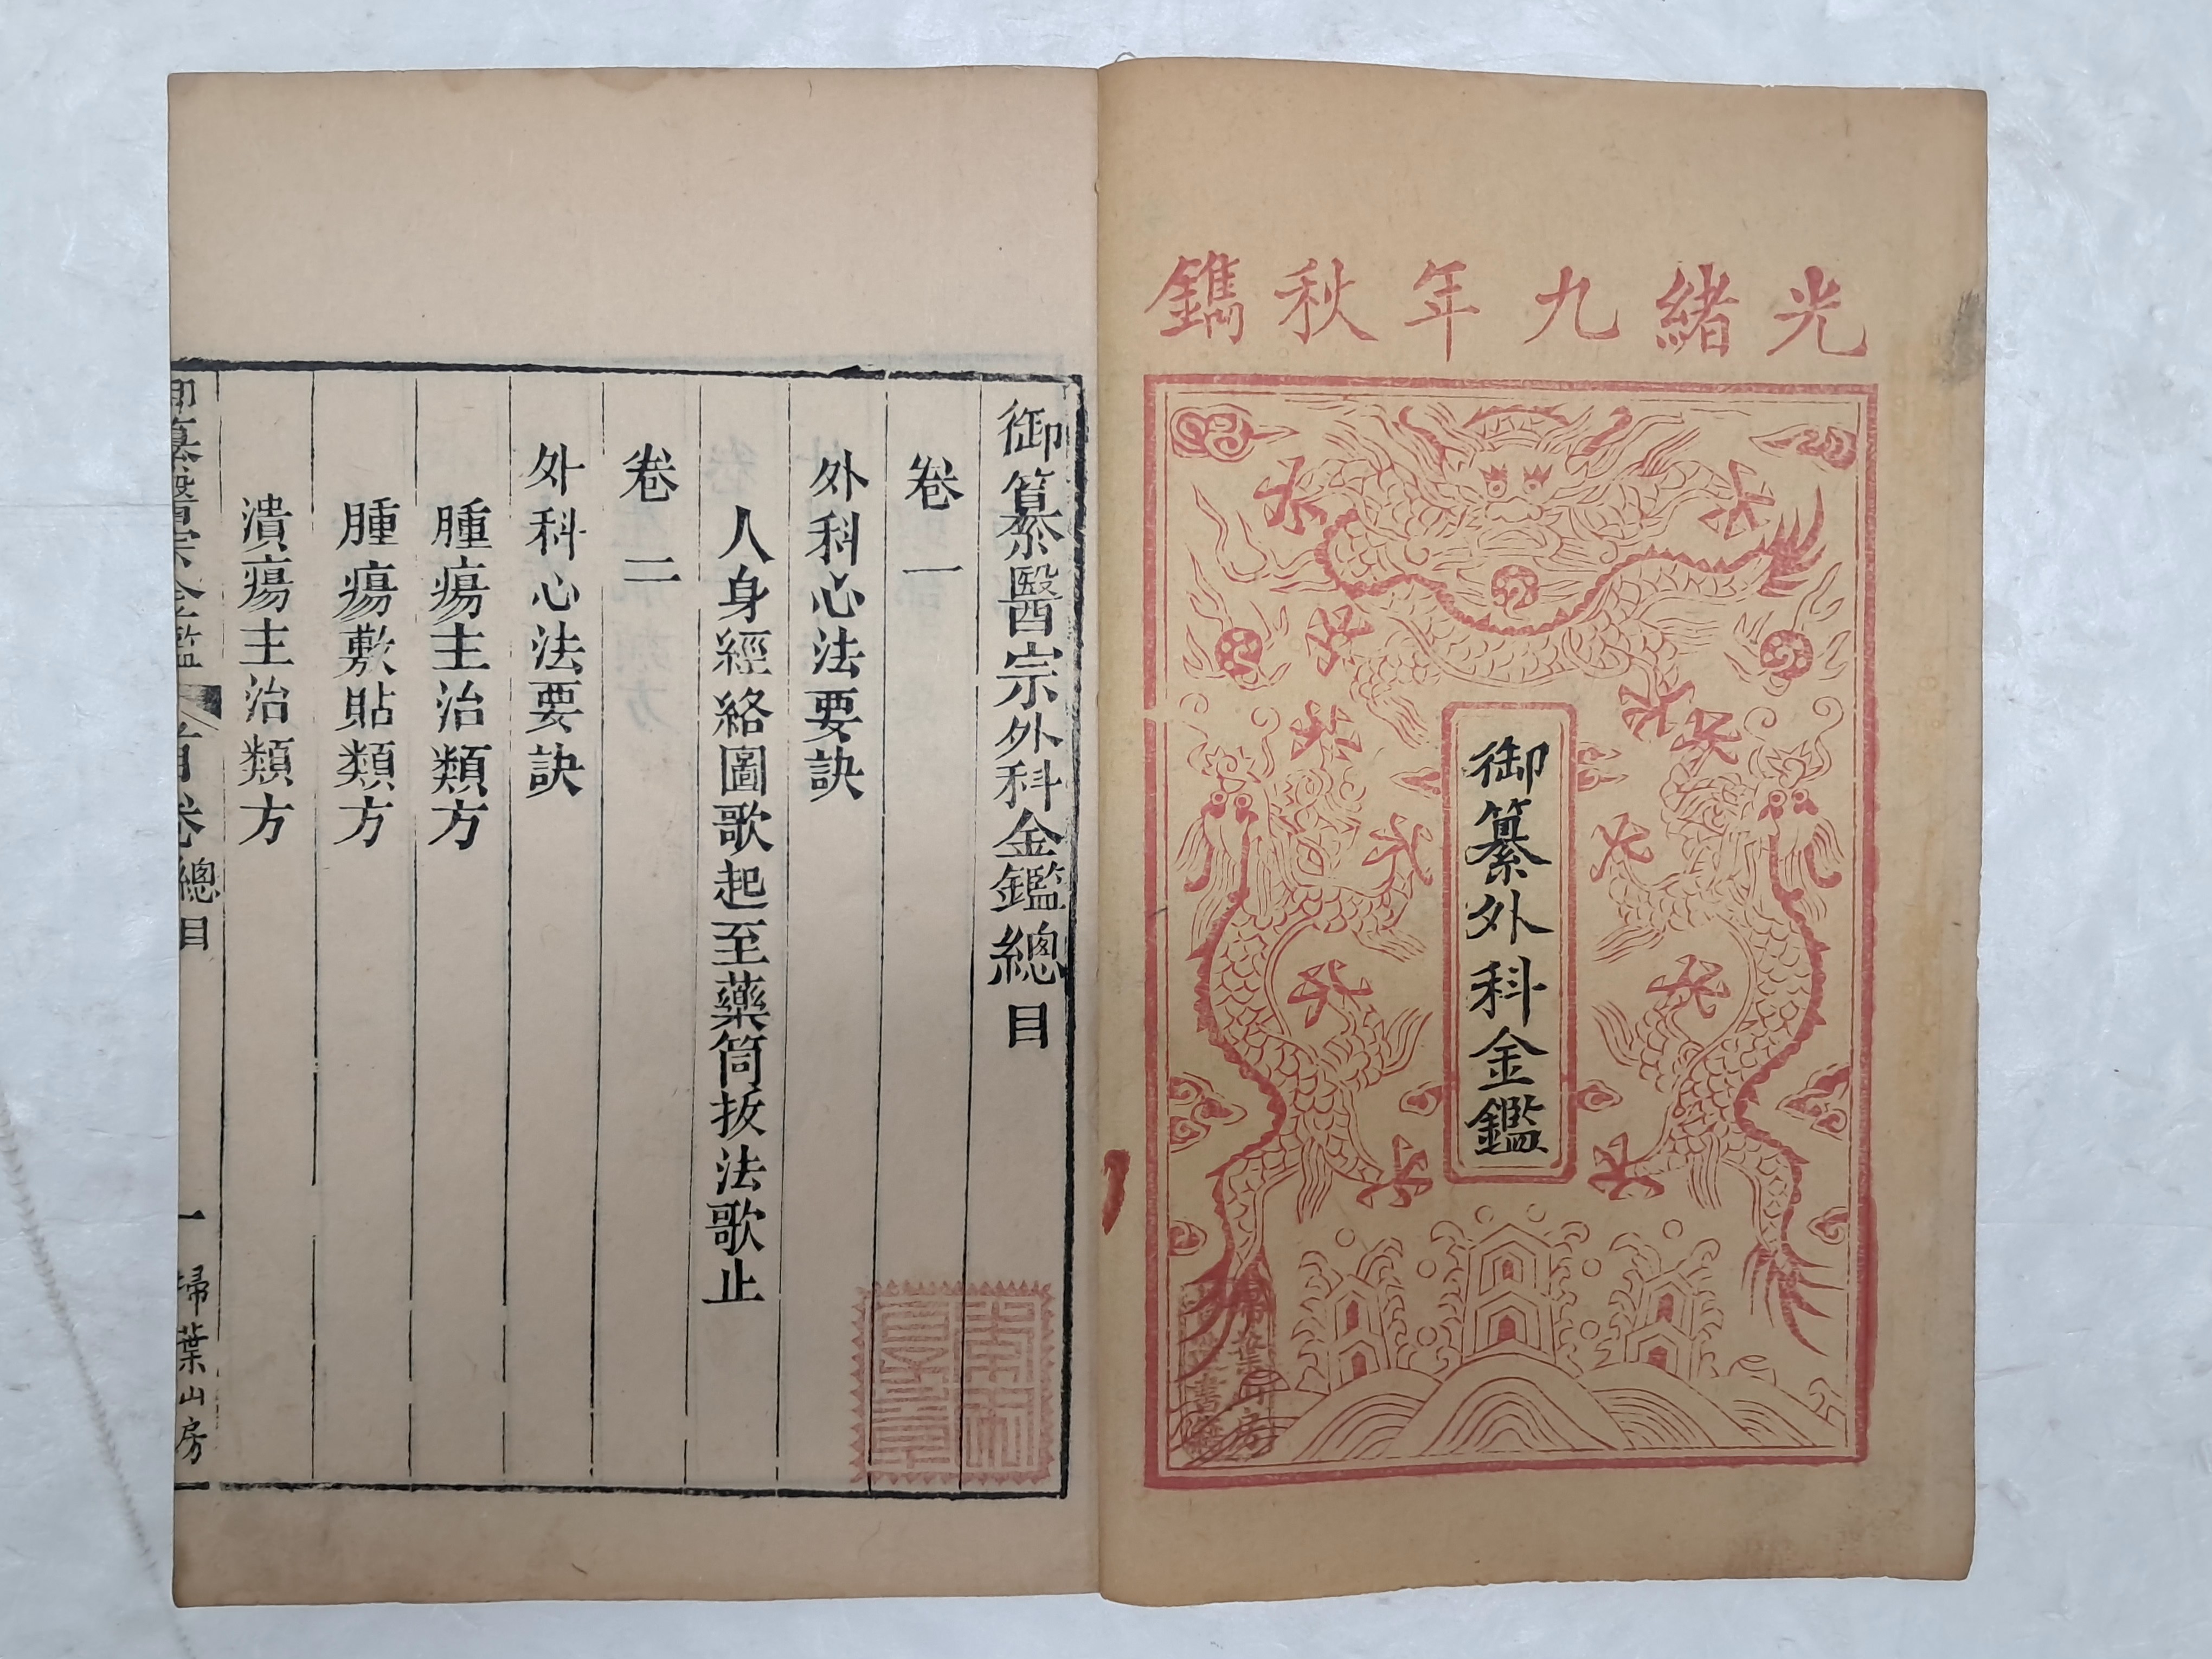 光緒九年秋鐫
御纂外科金鑑
掃葉山房
御纂醫宗外科金鑑總目
卷一
外科心法要訣
人身經絡圖歌起至藥筒拔法歌止
卷二
外科心法要訣
腫瘍主治類方
腫瘍敷貼類方
潰瘍主治類方
御纂醫宗金鑑 首卷總目 一 掃葉山房